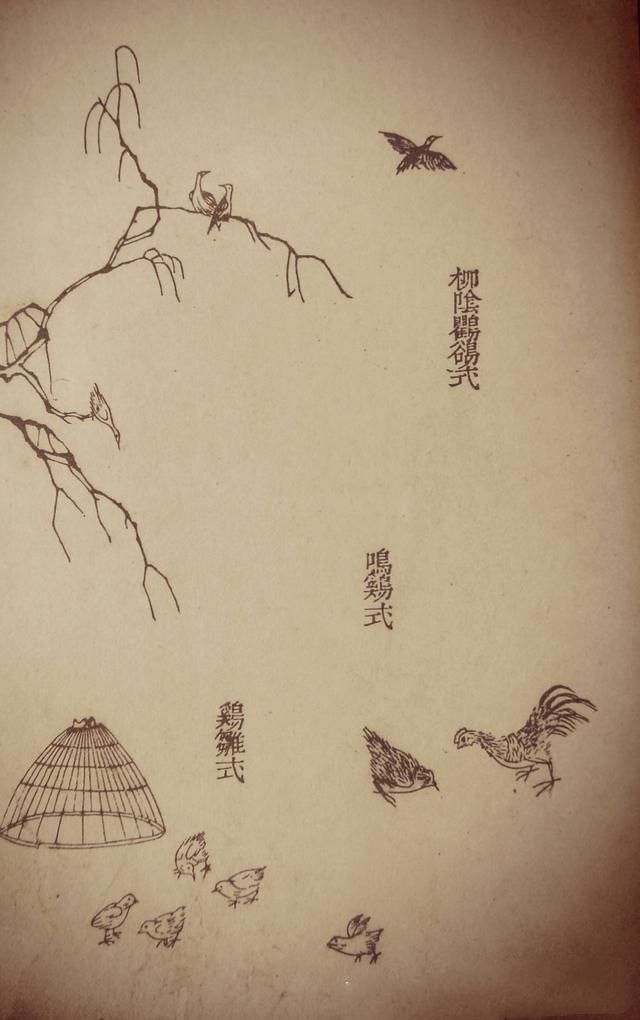 柳陰鸜鵒式
鳴鷄式
鷄雛式